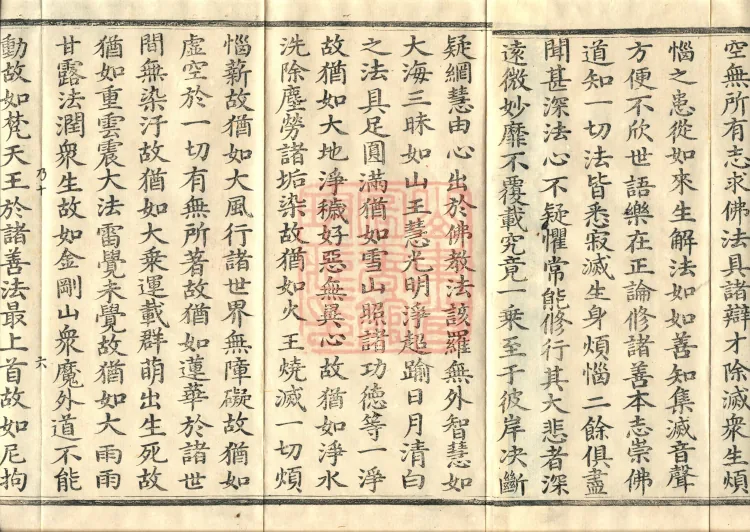 空無所有志求佛法具諸辯才除滅衆生煩
惱之患從如來生解法如如善知集滅音聲
方便不欣世語樂在正論修諸善本志崇佛
道知一切法皆悉寂滅生身煩惱二餘俱盡
聞甚深法心不疑懼常能修行其大悲者深
遠微妙靡不覆載究竟一乘至于彼岸决斷
疑網慧由心出於佛教法該羅無外智慧如
大海三昧如山王慧光明淨超踰日月清白
之法具足圓滿猶如雪山昭諸功德等一淨
故猶如大地淨穢好惡無異心故猶如淨水
洗除塵勞諸垢染故猶如火王燒滅一切煩
惱薪故猶如大風行諸世界無障礙故猶如
虛空於一切有無所著故猶如蓮華於諸世
間無染汙故猶如大乘運載群萌出生死故
猶如重雲震大法雷覺未覺故猶如大雨雨
甘露法潤衆生故如金剛山衆魔外道不能
乃十 六
動故如梵天王於諸善法最上首故如尼拘